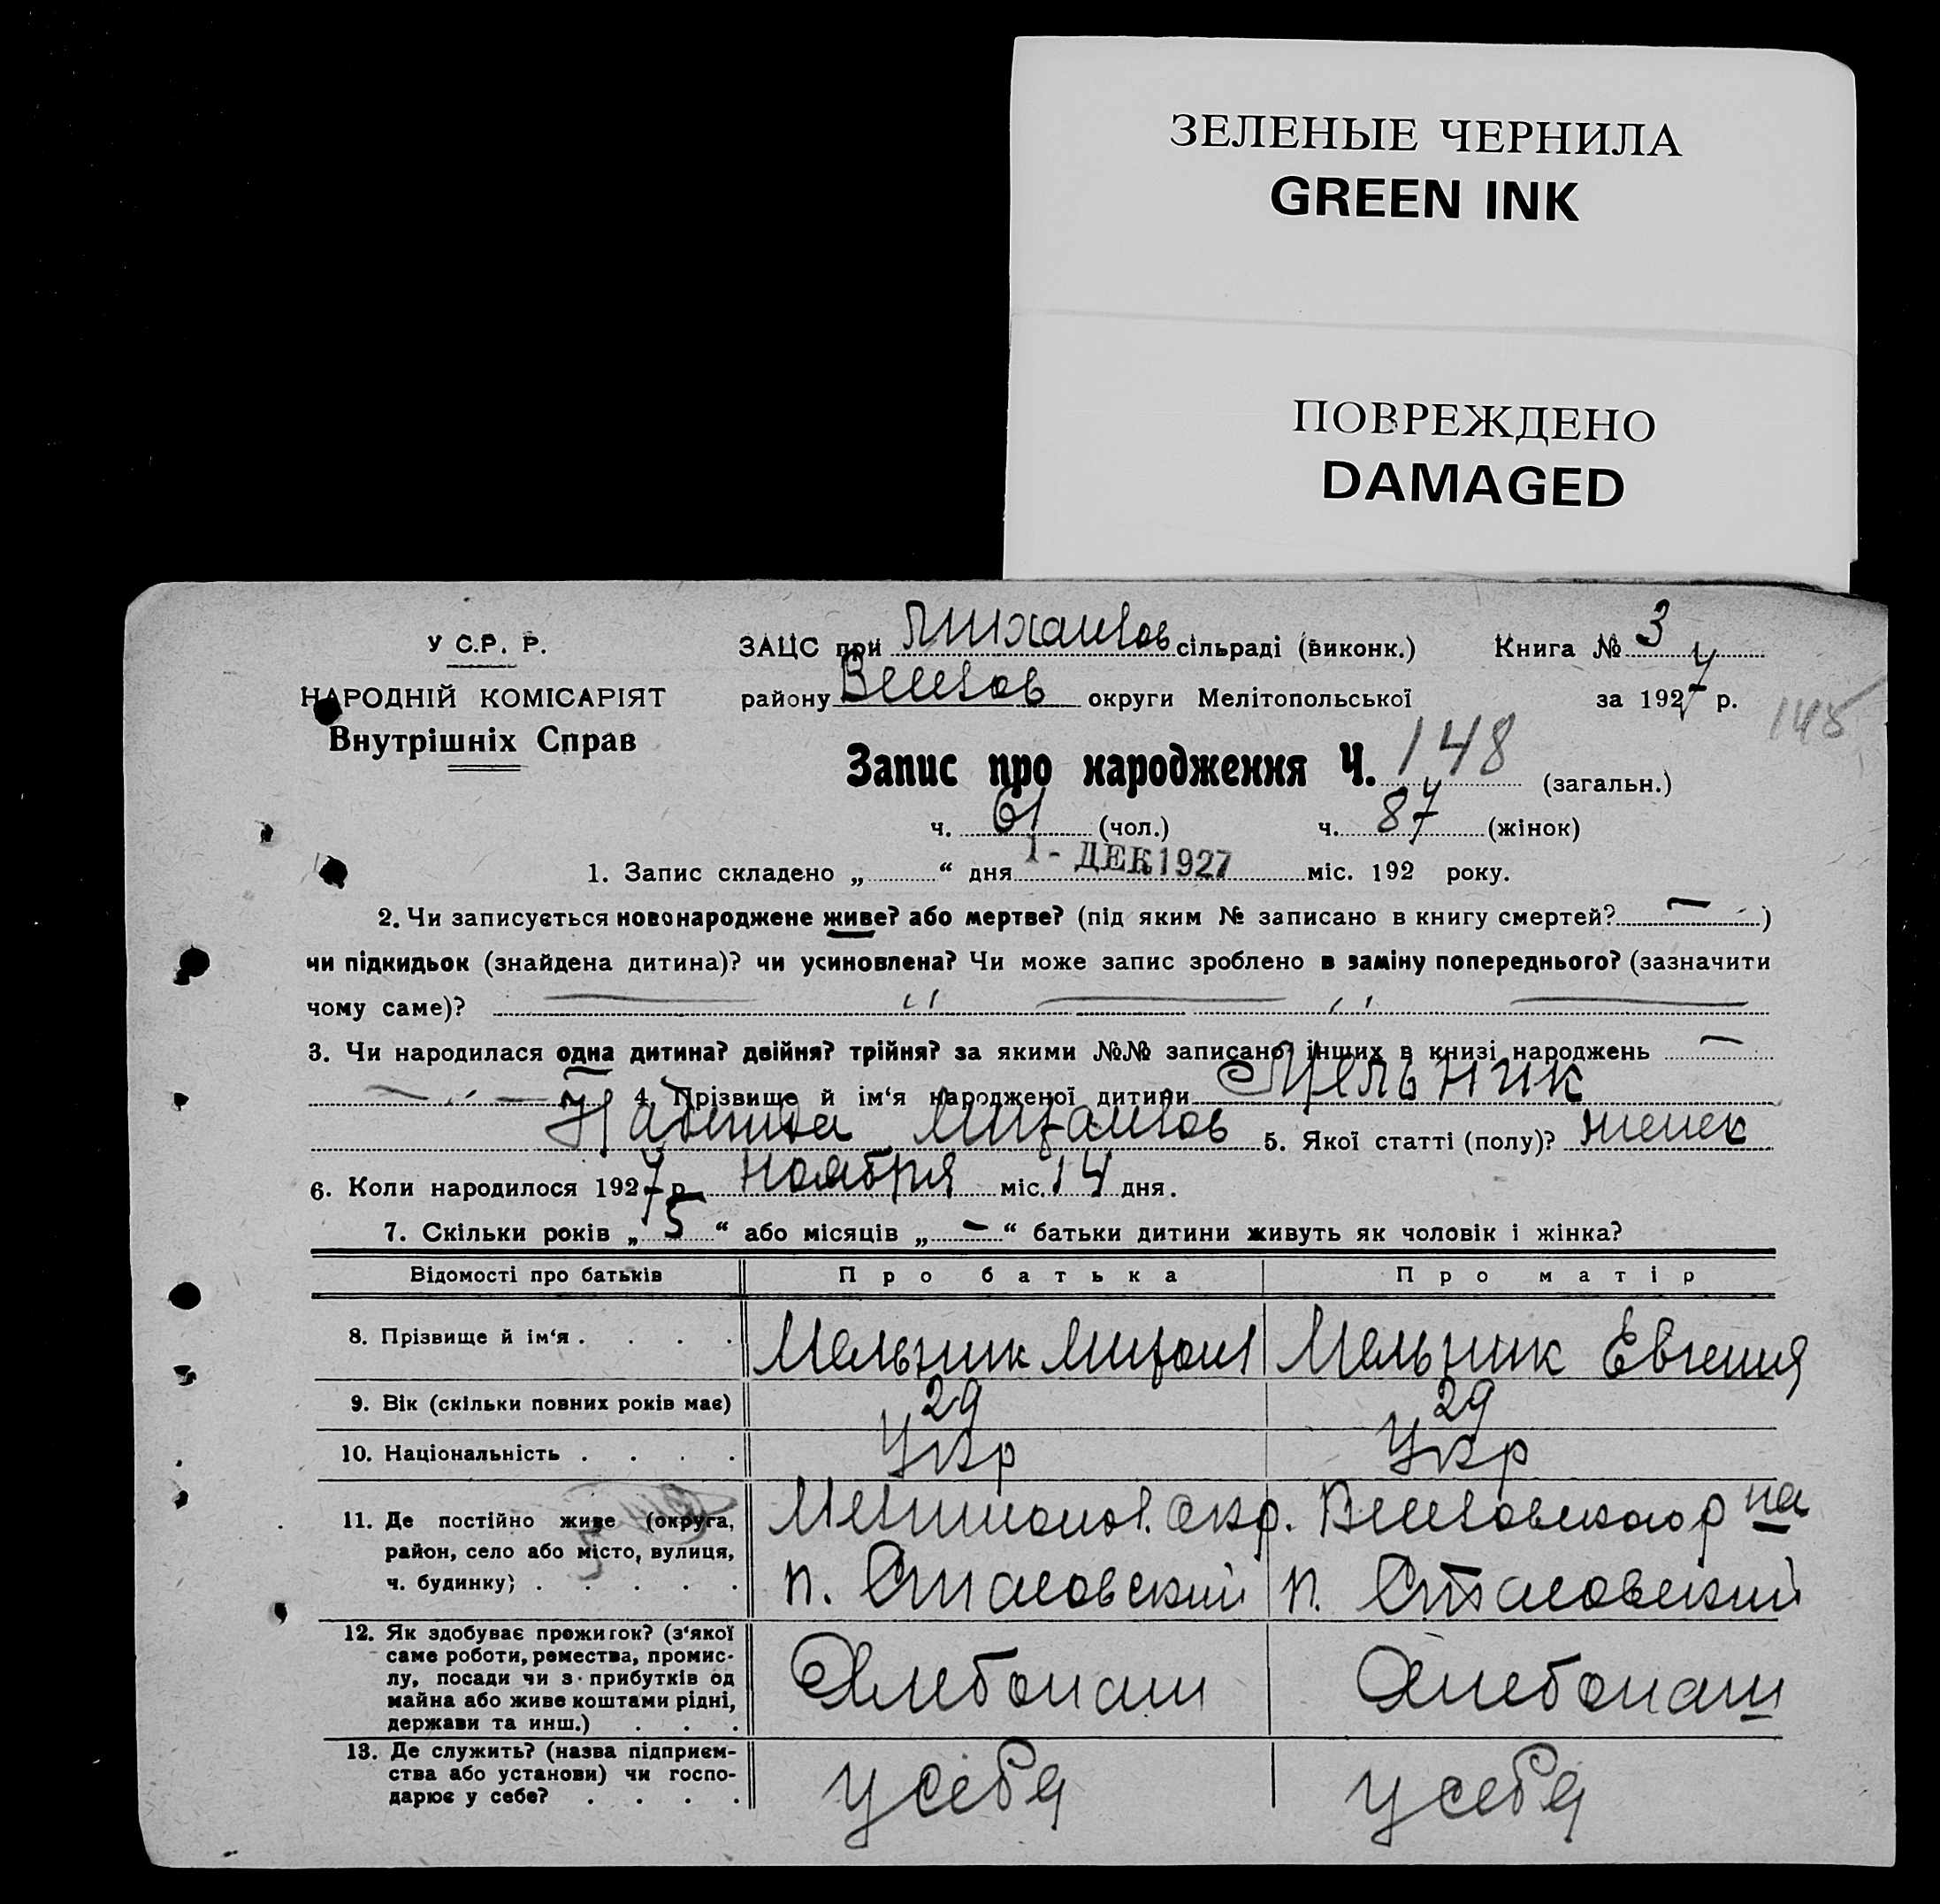 ЗЕЛЕНЫЕ ЧЕРНИЛА
GREEN INK
ПОВРЕЖДЕНО
DAMAGED
У С.Р. Р.
НАРОДНІЙ КОМІСАРІЯТ
Внутрішніх Справ
ЗАЦС при Михайлов сільраді (виконк.) Книга № 3
району округи Мелітопольської за 1927 р.
145
Запис про народження Ч. 148 (загальн.)
ч. 61 (чол.) ч. 87 (жінок)
1. Запис складено „ “ дня 1 - ДЕК 1927 міс. 192 року.
2. Чи записується новонароджене живе? або мертве? (під яким № записано в книгу смертей? — )
чи підкидьок (знайдена дитина)? чи усиновлена? Чи може запис зроблено в заміну попереднього? (зазначити
чому саме)? — " — " —
3. Чи народилася одна дитина? двійня? трійня? за якими №№ записано інших в книзі народжень —
— " — 4. Прізвище й ім‘я народженої дитини Мельник
Надежда Михайлов 5. Якої статті (полу)? женск
6. Коли народилося 1927 р. ноября міс. 14 дня.
7. Скільки років „ 5 “ або місяців „ — “ батьки дитини живуть як чоловік і жінка?
Відомості про батьків Про батька Про матір
8. Прізвище й ім‘я . . . . Мельник Михаил Мельник Евгения
9. Вік (скільки повних років має) 29 29
10. Національність . . . . Укр Укр
11. Де постійно живе (округа, район, село або місто, вулиця, ч. будинку) . . . . .
Мелитопол. окр. Веселовского р на
п. п.
12. Як здобуває прожиток? (з‘якої саме роботи, ремества, промислу, посади чи з прибутків од майна або живе коштами рідні, держави та инш.) . . .
Хлебопаш Хлебопаш
13. Де служить? (назва підприємства або установи) чи господарює у себе? . . . .
у себя у себя